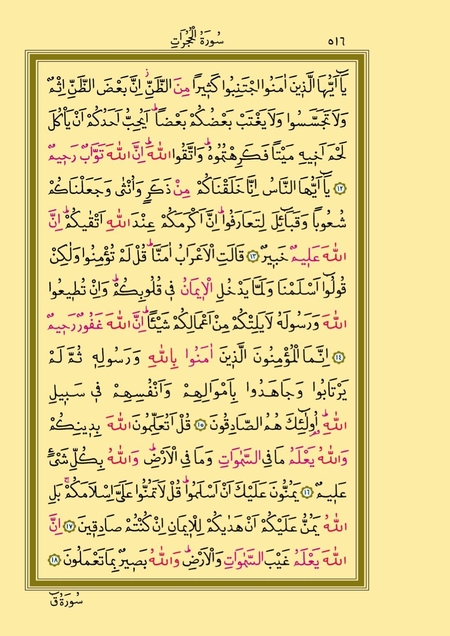 سُورَةُ الْحُجُرَاتِ ٥١٦
يَٓا اَيُّهَا الَّذ۪ينَ اٰمَنُوا اجْتَنِبُوا كَث۪يرًا مِنَ الظَّنِّۘ اِنَّ بَعْضَ الظَّنِّ اِثْمٌ
وَلَا تَجَسَّسُوا وَلَا يَغْتَبْ بَعْضُكُمْ بَعْضًاۜ اَيُحِبُّ اَحَدُكُمْ اَنْ يَأْكُلَ
لَحْمَ اَخ۪يهِ مَيْتًا فَكَرِهْتُمُوهُۜ وَاتَّقُوا اللّٰهَۜ اِنَّ اللّٰهَ تَوَّابٌ رَح۪يمٌ
﴿١٢﴾ يَٓا اَيُّهَا النَّاسُ اِنَّا خَلَقْنَاكُمْ مِنْ ذَكَرٍ وَاُنْثٰى وَجَعَلْنَاكُمْ
شُعُوبًا وَقَبَٓائِلَ لِتَعَارَفُواۜ اِنَّ اَكْرَمَكُمْ عِنْدَ اللّٰهِ اَتْقٰيكُمْۜ اِنَّ
اللّٰهَ عَل۪يمٌ خَب۪يرٌ ﴿١٣﴾ قَالَتِ الْاَعْرَابُ اٰمَنَّاۜ قُلْ لَمْ تُؤْمِنُوا وَلٰكِنْ
قُولُٓوا اَسْلَمْنَا وَلَمَّا يَدْخُلِ الْا۪يمَانُ ف۪ي قُلُوبِكُمْۜ وَاِنْ تُط۪يعُوا
اللّٰهَ وَرَسُولَهُ لَا يَلِتْكُمْ مِنْ اَعْمَالِكُمْ شَيْـًٔاۜ اِنَّ اللّٰهَ غَفُورٌ رَح۪يمٌ
﴿١٤﴾ اِنَّمَا الْمُؤْمِنُونَ الَّذ۪ينَ اٰمَنُوا بِاللّٰهِ وَرَسُولِه۪ ثُمَّ لَمْ
يَرْتَابُوا وَجَاهَدُوا بِاَمْوَالِهِمْ وَاَنْفُسِهِمْ ف۪ي سَب۪يلِ
اللّٰهِۜ اُو۬لٰٓئِكَ هُمُ الصَّادِقُونَ ﴿١٥﴾ قُلْ اَتُعَلِّمُونَ اللّٰهَ بِد۪ينِكُمْ
وَاللّٰهُ يَعْلَمُ مَا فِي السَّمٰوَاتِ وَمَا فِي الْاَرْضِۜ وَاللّٰهُ بِكُلِّ شَيْءٍ
عَل۪يمٌ ﴿١٦﴾ يَمُنُّونَ عَلَيْكَ اَنْ اَسْلَمُواۜ قُلْ لَا تَمُنُّوا عَلَيَّ اِسْلَامَكُمْۚ بَلِ
اللّٰهُ يَمُنُّ عَلَيْكُمْ اَنْ هَدٰيكُمْ لِلْا۪يمَانِ اِنْ كُنْتُمْ صَادِق۪ينَ ﴿١٧﴾ اِنَّ
اللّٰهَ يَعْلَمُ غَيْبَ السَّمٰوَاتِ وَالْاَرْضِۜ وَاللّٰهُ بَص۪يرٌ بِمَا تَعْمَلُونَ ﴿١٨﴾
سُورَةُ قٓ